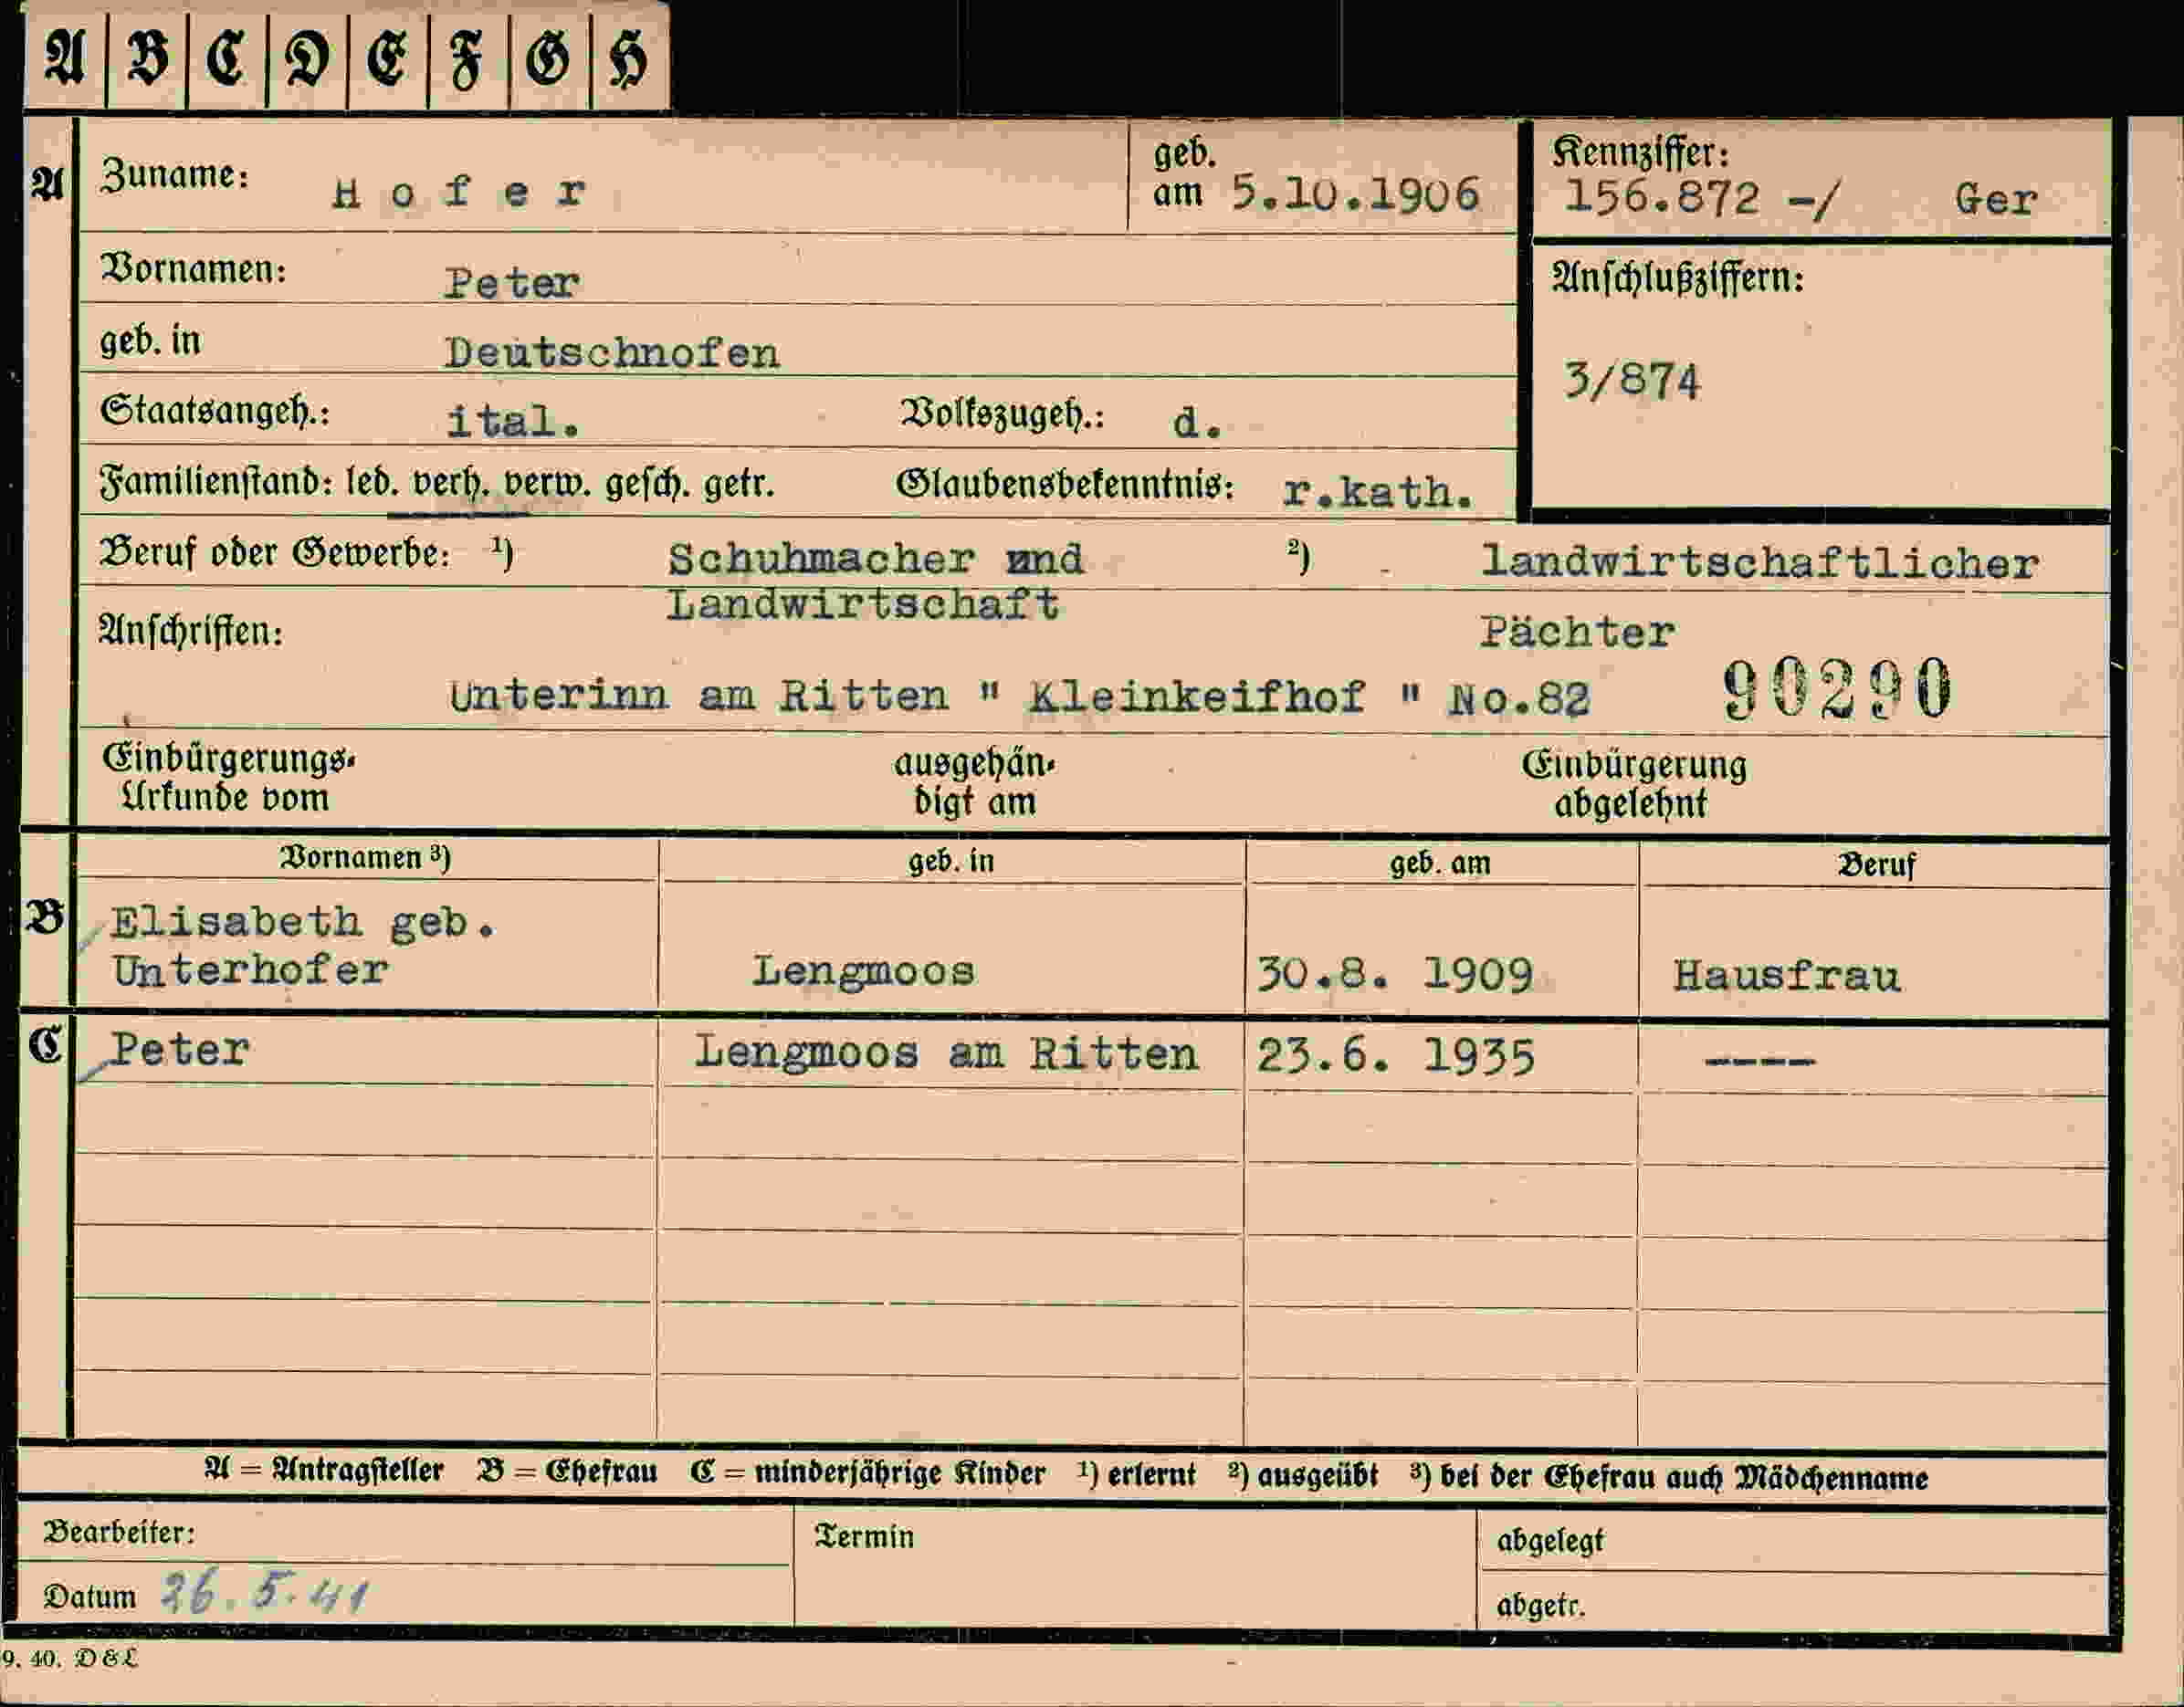 A B C D E F G H
A Zuname: Hofer geb. am 5.10.1906 Kennziffer: 156.872 -/ Ger
Vornamen: Peter Anschlußziffern:
geb. in Deutschnofen 3/874
Staatsangeh.: ital. Volkszugeh.: d.
Familienstand: led. verh. verw. gesch. getr. Glaubensbekenntnis: r.kath.
Beruf oder Gewerbe: 1) Schuhmacher und 2) landwirtschaftlicher
Landwirtschaft
Anschriften: Pächter
Unterinn am Ritten " Kleinkeifhof " No.82 90290
Einbürgerungs- ausgehän- Einbürgerung
Urkunde vom digt am abgelehnt
Vornamen 3) geb. in geb. am Beruf
B Elisabeth geb.
Unterhofer Lengmoos 30.8. 1909 Hausfrau
C Peter Lengmoos am Ritten 23.6. 1935 ----
A = Antragsteller B = Ehefrau C = minderjährige Kinder 1) erlernt 2) ausgeübt 3) bei der Ehefrau auch Mädchenname
Bearbeiter: Termin abgelegt
Datum 26.5.41 abgetr.
9. 40. D&L